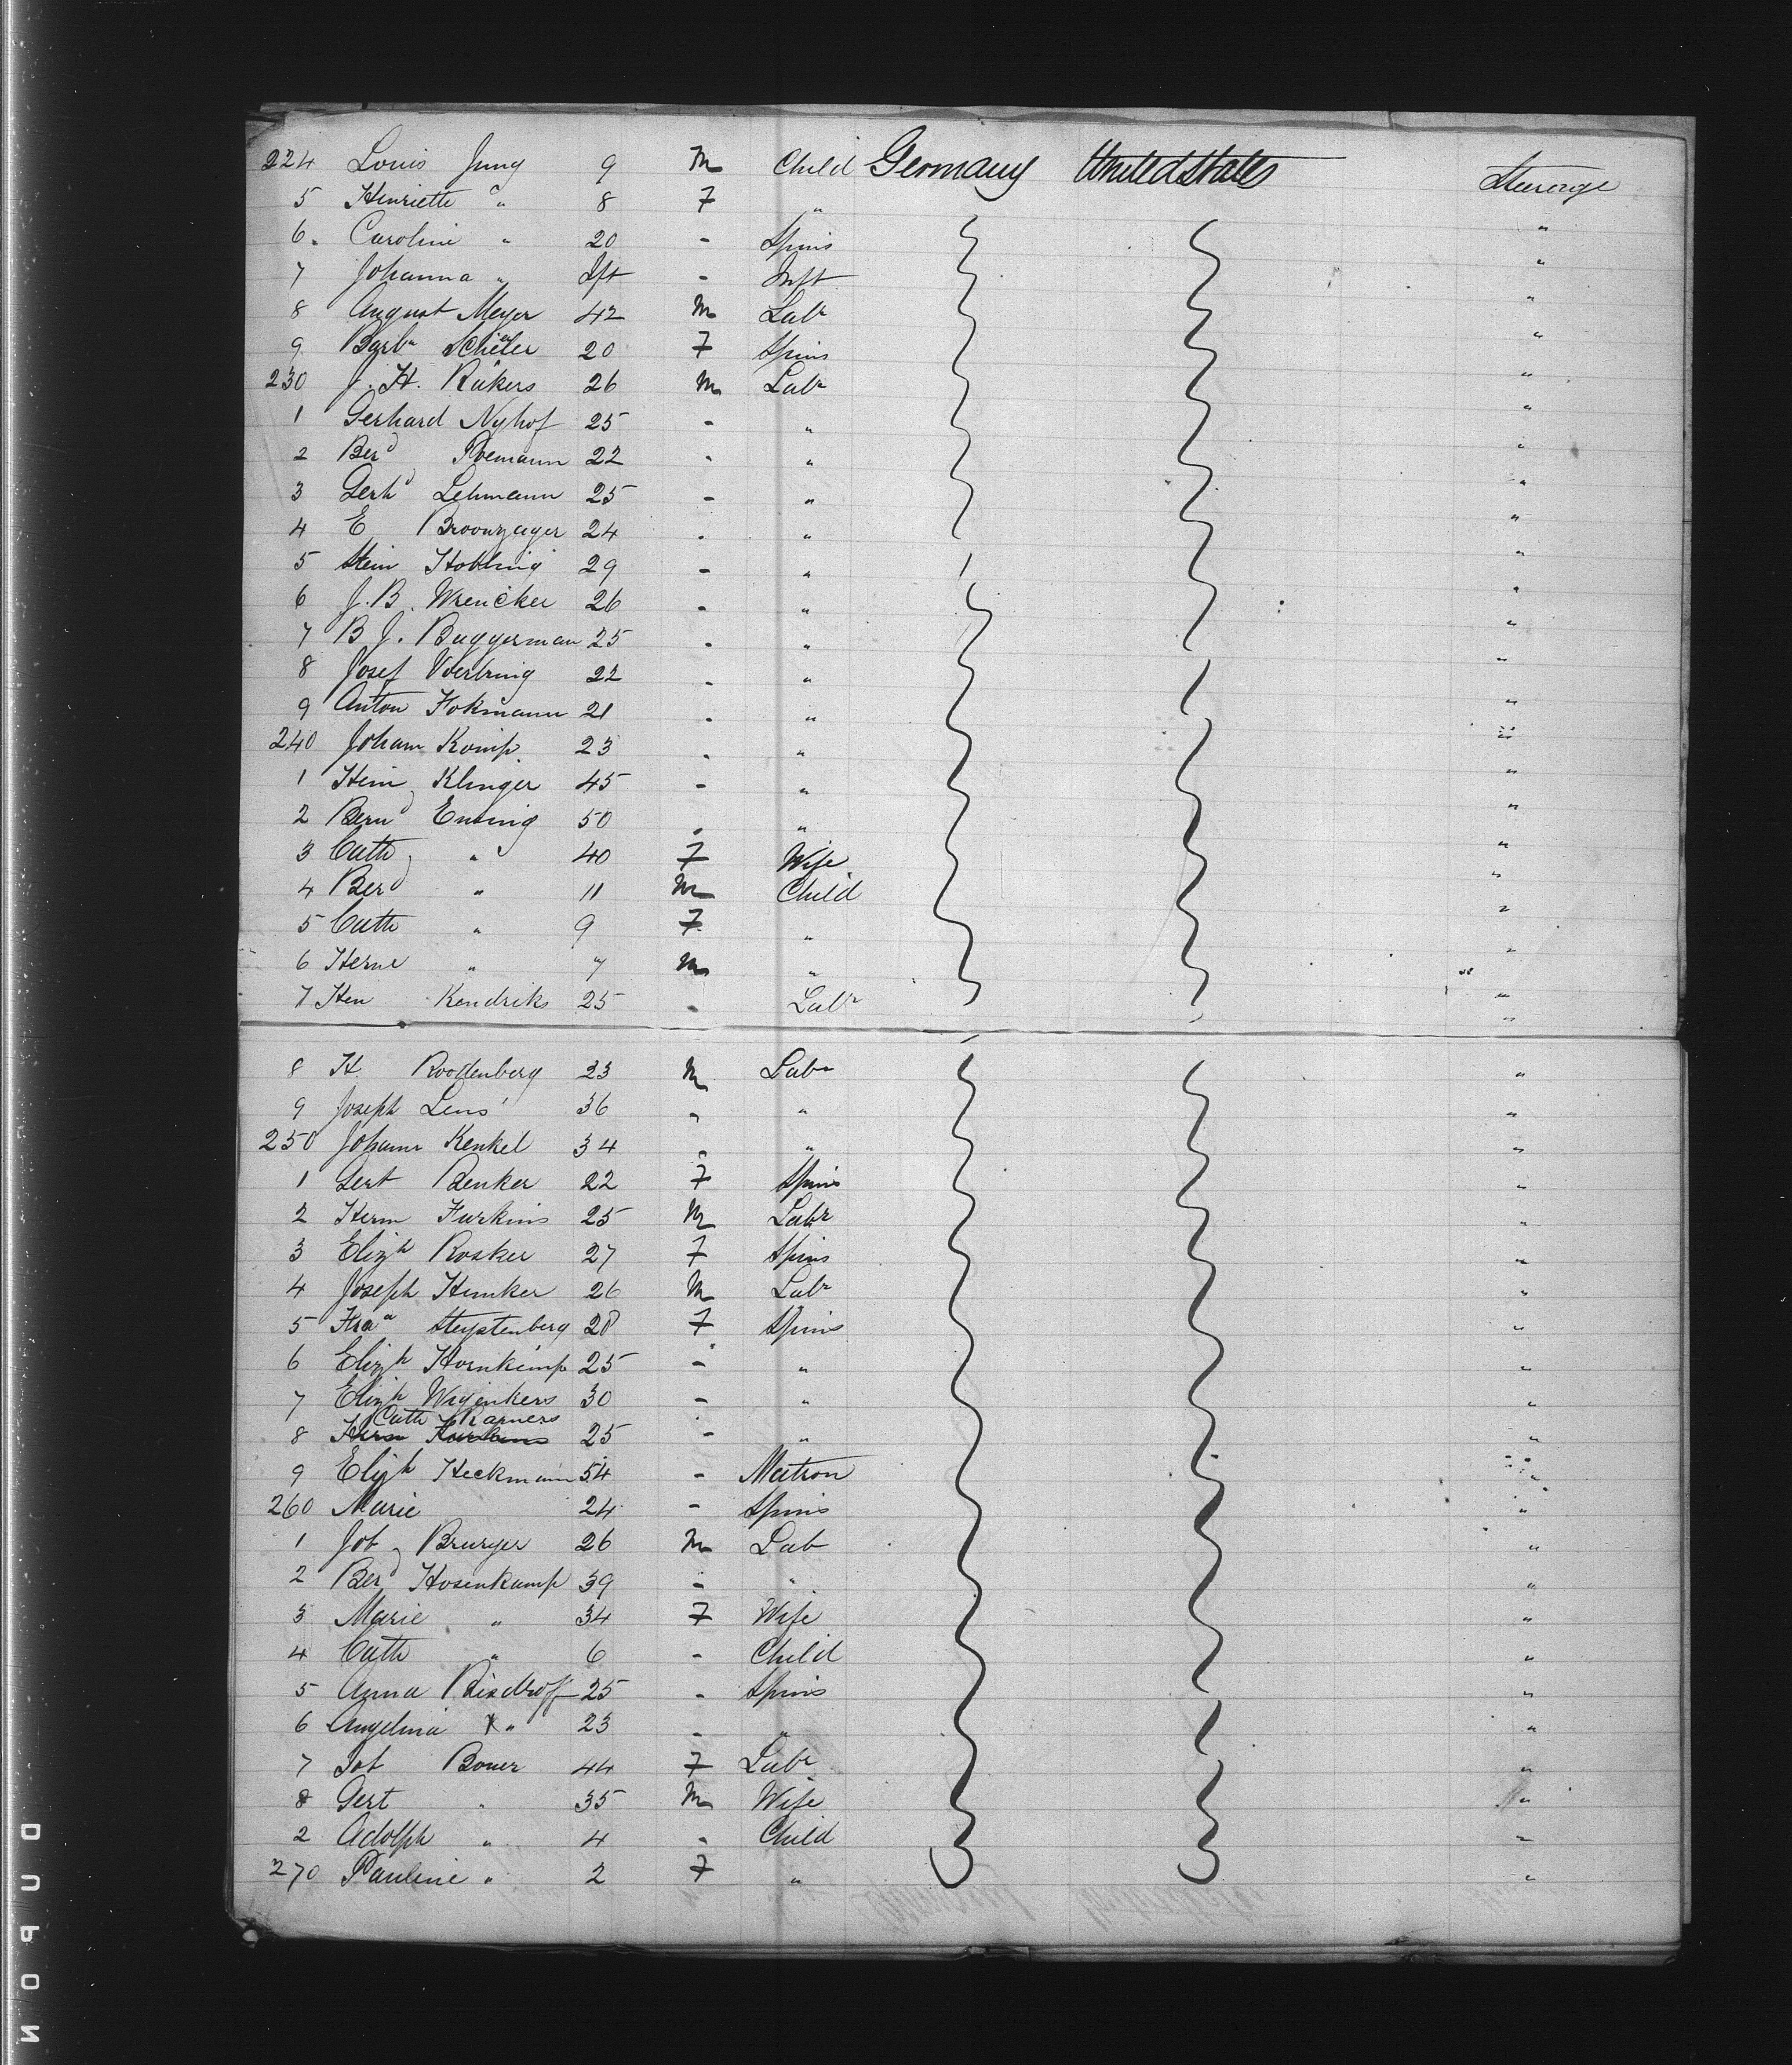 224 Louis Jung 9 M Child Germany United States Steerage
5 Henriette " 8 F " "
6. Caroline " 20 - Spins "
7 Johanna " Ift - Inft "
8 August Meyer 42 M Labr "
9 Barba 20 F Spins "
230 J. H. Rükers 26 M Labr "
1 Gerhard Nyhof 25 - " "
2 Berd 22 - " "
3 Gerhd Lehmann 25 - " "
4 E 24 - " "
5 29 - " "
6 J. B. Wrencker 26 - " "
7 B J. Buggerman 25 - " "
8 Josef 22 - " "
9 Anton Fokmann 21 - " "
240 Johann 23 - " "
1 Hein Klinger 45 - " "
2 Bernd Ensing 50 - " "
3 Cath " 40 F Wife "
4 Berd " 11 M Child "
5 Cath " 9 F " "
6 Herm " 7 M " "
7 Hen Kendriks 25 - Labr "
8 H. Roodenberg 23 M Labr "
9 Joseph Lens 36 " " "
250 Johann Kenkel 34 - " "
1 Gert Benker 22 F Spins "
2 Herm Furkins 25 M Labr "
3 Elizh Rosker 27 F Spins "
4 Joseph Hunker 26 M Labr "
5 28 F Spins "
6 Elizh Hornkamp 25 - " "
7 Elizh Wigenkers 30 - " "
Cath Karners
8 25 - " "
9 Elizh Heckmann 54 - Matron "
260 Marie 24 - Spins "
1 Joh 26 M Lab "
2 Berd Hosenkamp 39 - " "
3 Marie " 34 F Wife "
4 Cath " 6 - Child "
5 Anna Bischoff 25 - Spins "
6 Angelina " 23 - " "
7 Joh Bower 44 F Labr "
8 Gert " 35 M Wife "
2 Adolph " 4 - Child "
270 Pauline " 2 F " "